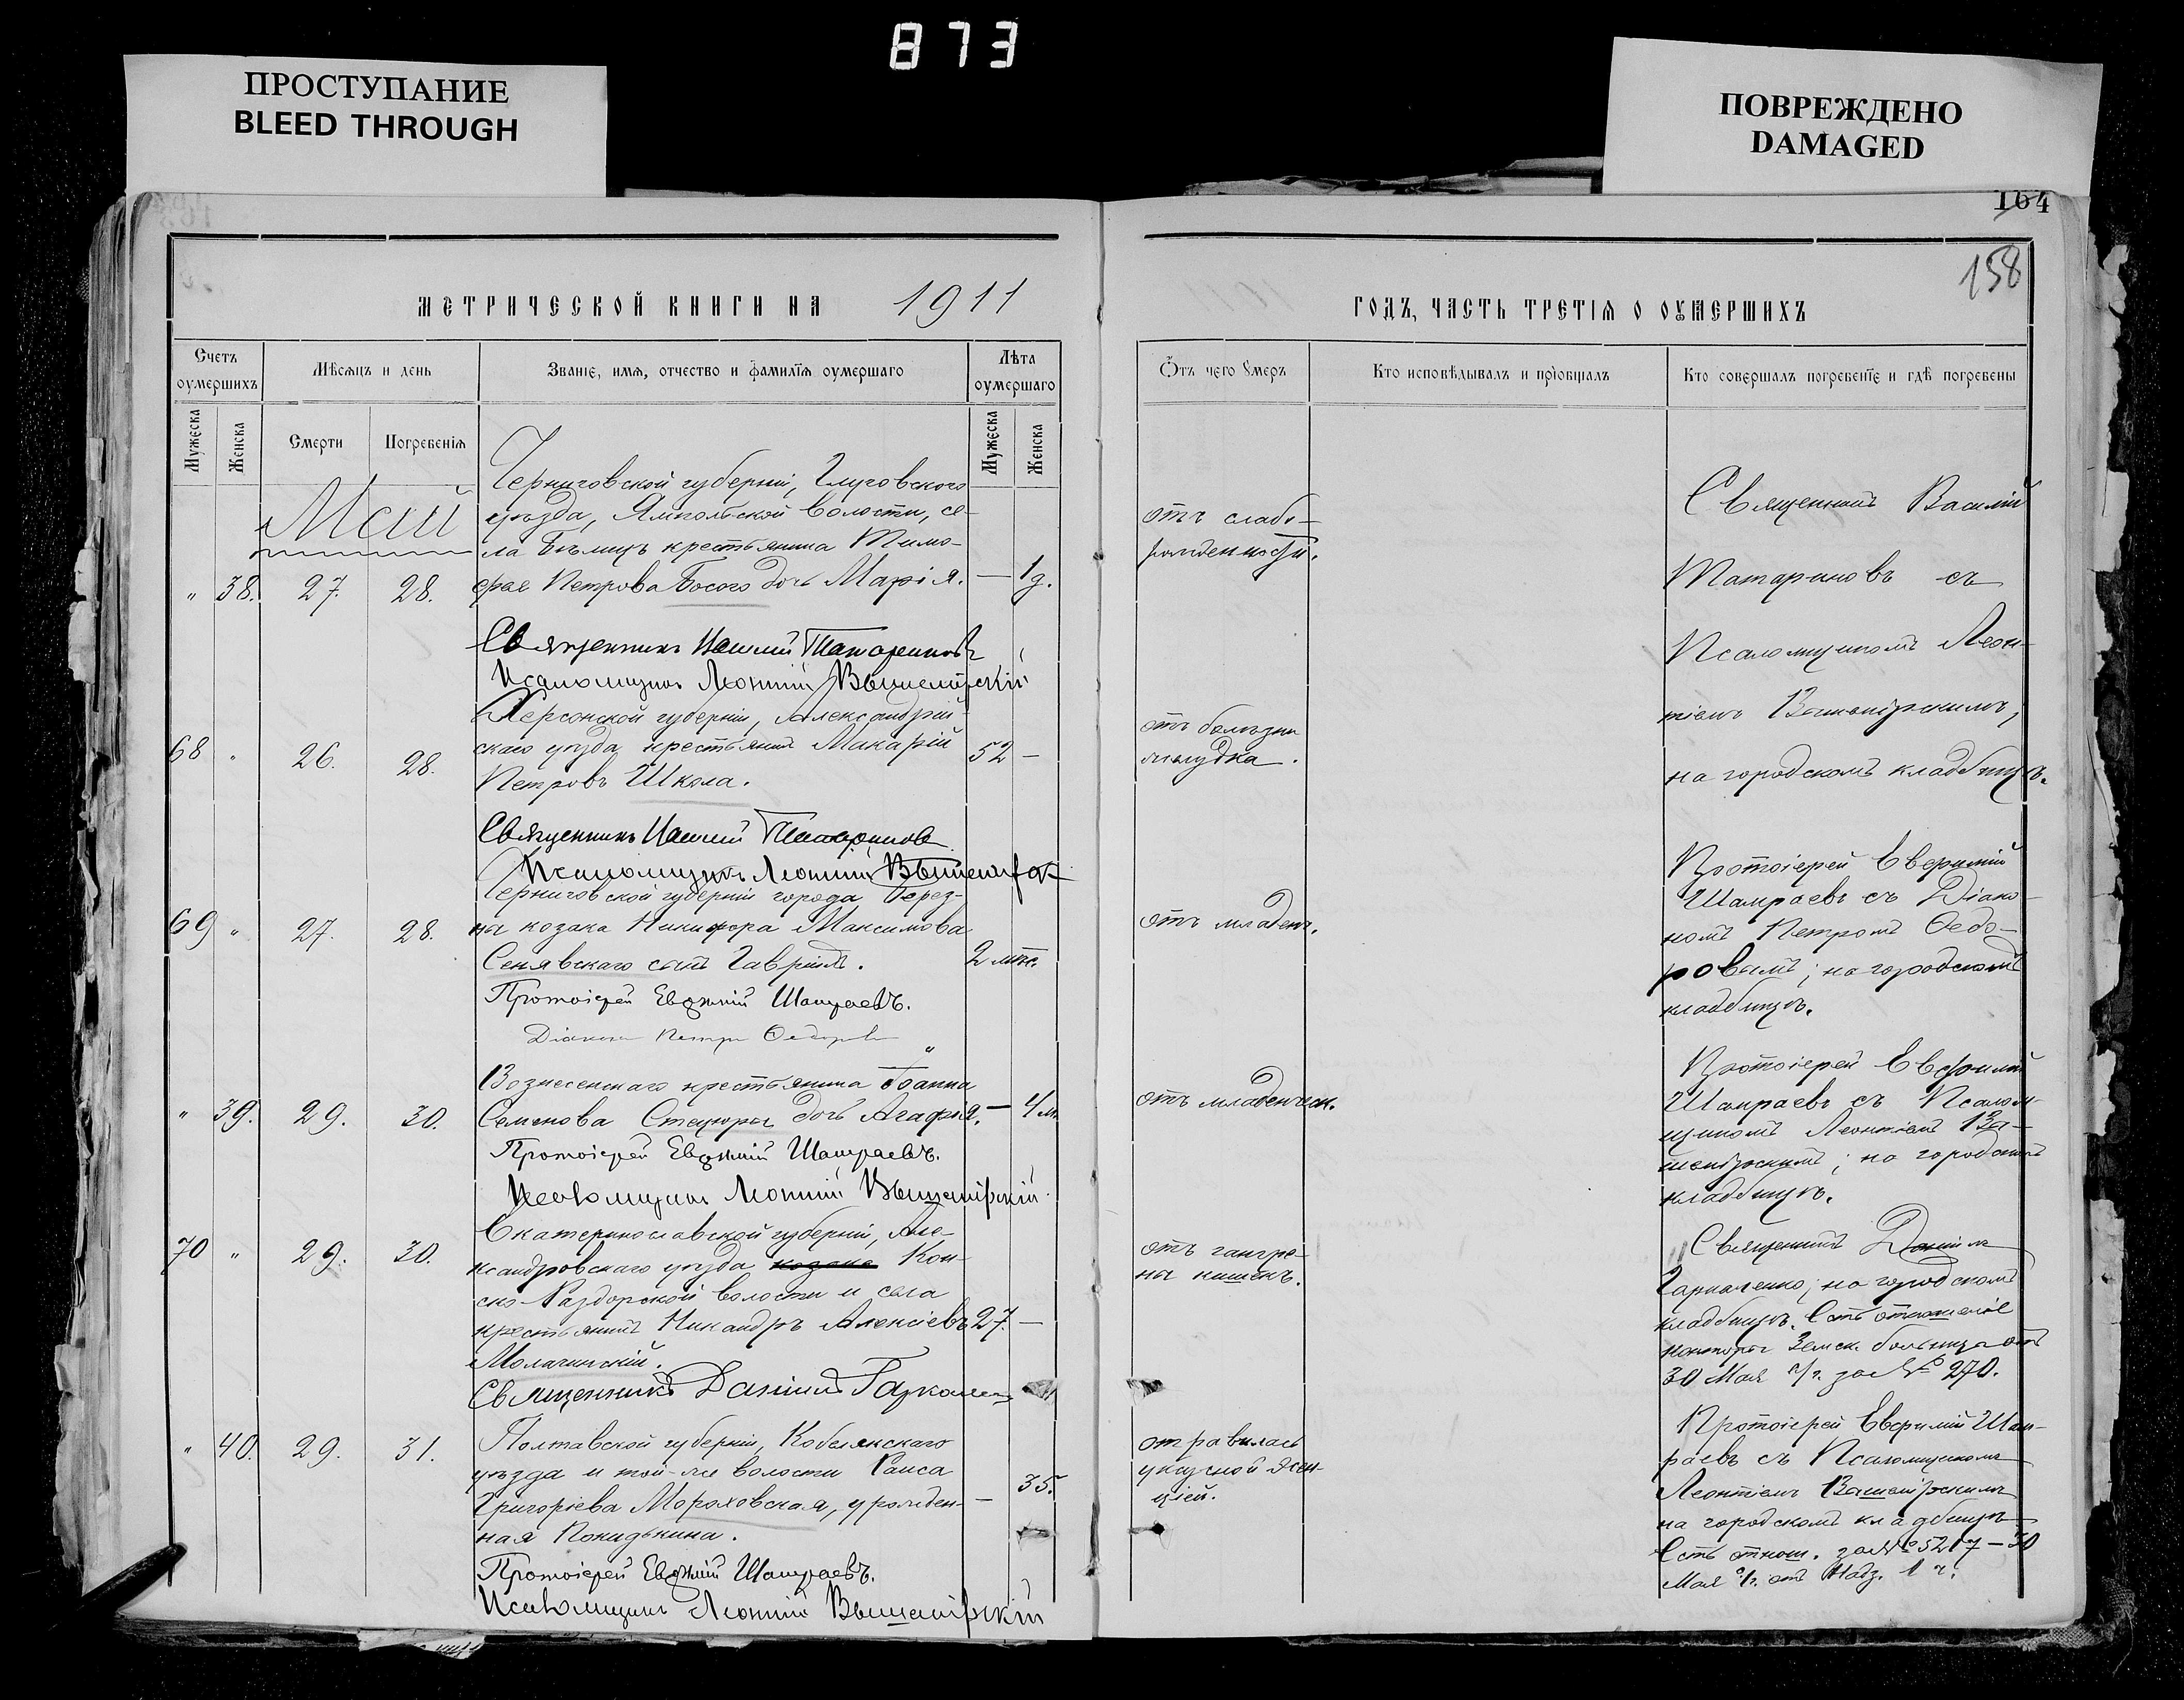 873
ПРОСТУПАНИЕ
BLEED THROUGH
ПОВРЕЖДЕНО
DAMAGED
164
158
МЕТРИЧЕСКОЙ КНИГИ НА 1911
ГОДЪ, ЧАСТЬ ТРЕТІѦ О ОУМЕРШИХЪ
Счетъ оумершихъ
Мѣсяцъ и день
Званіе, имя, отчество и фамилія оумершаго
Лѣта оумершаго
Мужеска
Женска
Смерти
Погребенія
Мужеска
Женска
Отъ чего умеръ
Кто исповѣдывалъ и пріобщалъ
Кто совершалъ погребеніе и гдѣ погребены
Май
Черниговской губерніи, Глуховского
уѣзда, Ямпольской волости, се-
ла Бѣлицъ крестьянина Тимо-
" 38. 27. 28. фея Петрова Босого дочь Марія. — 1 д.
отъ слабо-
рожденности.
Священникъ Василій
Татариновъ съ
Псаломщикомъ Леон-
тіемъ
на городскомъ кладбищѣ.
Священникъ Василій Татариновъ
Псаломщикъ Леонтій
Херсонской губерніи, Александрій-
68 " 26. 28. скаго уѣзда крестьянинъ Макарій 52 —
Петровъ Школа.
отъ болѣзни
желудка.
Священникъ Василій Татариновъ
Псаломщикъ Леонтій
Черниговской губерніи города Берез-
69 " 27. 28. ны козака Никифора Максимова
Сенявскаго сынъ Гавріилъ. 2 мѣс.
отъ младен.
Протоіерей Евфимій
Шамраевъ съ Діако-
номъ Петромъ Федо-
ровымъ; на городскомъ
кладбищѣ.
Протоіерей Евфимій Шамраевъ.
Діаконъ Петръ Федоровъ
Вознесенскаго крестьянина Іоанна
" 39. 29. 30. Семенова Стецюры дочь Агафія. — 4 м.
отъ младенческ.
Протоіерей Евфимій
Шамраевъ съ Псалом-
щикомъ Леонтіемъ
на городскомъ
кладбищѣ.
Протоіерей Евфимій Шамраевъ.
Псаломщикъ Леонтій
Екатеринославской губерніи, Але-
70 " 29. 30. ксандровскаго уѣзда козака Кон-
ско-Раздорской волости и села
крестьянинъ Никандръ Алексіевъ 27. —
отъ гангре-
ны кишекъ.
Священникъ Даніилъ
Гаркаленко; на городскомъ
кладбищѣ. Есть отношеніе
конторы Земск. больницы отъ
30 Мая с/г. за № 270.
Священникъ Даніилъ
" 40. 29. 31. Полтавской губерніи, Кобелякскаго
уѣзда и той-же волости Раиса
Григоріева Мороховская, урожден- — 35.
ная
отравилась
уксусной эсен-
ціей.
Протоіерей Евфимій Шам-
раевъ съ Псаломщикомъ
Леонтіемъ
на городскомъ кладбищѣ
Есть отнош. за № 5217 — 30
Мая с/г. отъ Надз. 1 ч.
Протоіерей Евфимій Шамраевъ.
Псаломщикъ Леонтій